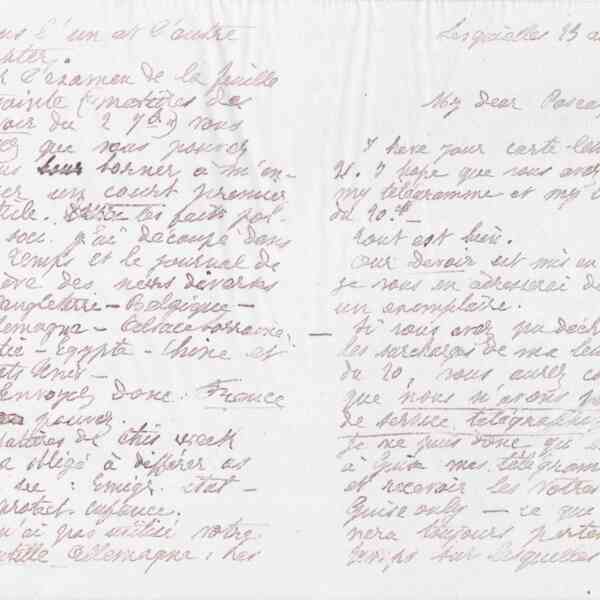 l'un et l'autre
l'examen de la feuille
jointe (matières des
du 2 9bre) vous
que vous pouvez
borner à m'en-
un court premier
les faits pol-
soci. j'ai découpé dans
Temps et le journal de
des news diverses
Angleterre – Belgique –
Allemagne – Alsace Lorraine,
– Egypte – Chine et
Unis –
Envoyez donc. France
pouvez.
matières de this week
obligé à différer as
re : Emigr. etat –
protect. enfance.
n'ai pas utilisé votre
Allemagne, les
Lesquielles 23
My dear Pascal
I have your carte-let
21. I hope que vous avez
my télégramme et my
du 20. –
Tout est bien.
Our Devoir est mis en
je vous en adresserai de
un exemplaire.
Si vous avez pu déch
les surcharges de ma let
du 20, vous aurez
que nous n'avons p
de service télégraphi
Je ne puis donc qu'
à Guise mes télégram
et recevoir les vôtres
Guise only – ce que
nera toujours perte
temps sur Lesquielles